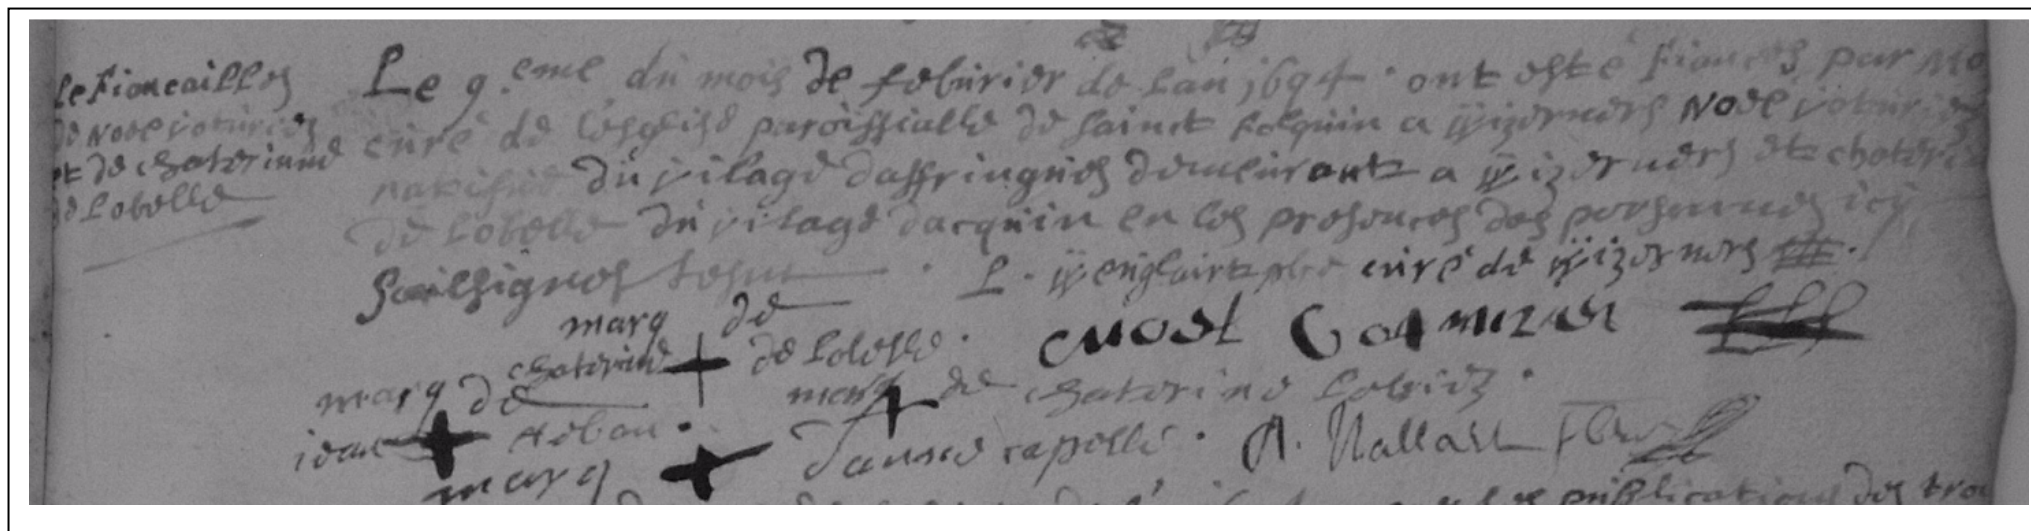 Le Fiancailles
de Noel voturiez
et de chaterinne
de Lobelle
Le 9.eme du mois de febúrier de Lan 1694 · ont esté fiancés par mo
cúré de Lesglise paroissialle de sainct folquin a Wizernes Noel voturiez
natif du vilage daffringúes demeúrant a Wizernes et chateri
de Lobelle dú vilage dacqúin en les presences des personnes icy
soúlsignes · L. Wenglairt pbr cúré de Wizernes
marq de
chaterine + de lobelle · NOEL
marq de marq de chaterine
iean +
marq + danne capelle · A.
publications des troi